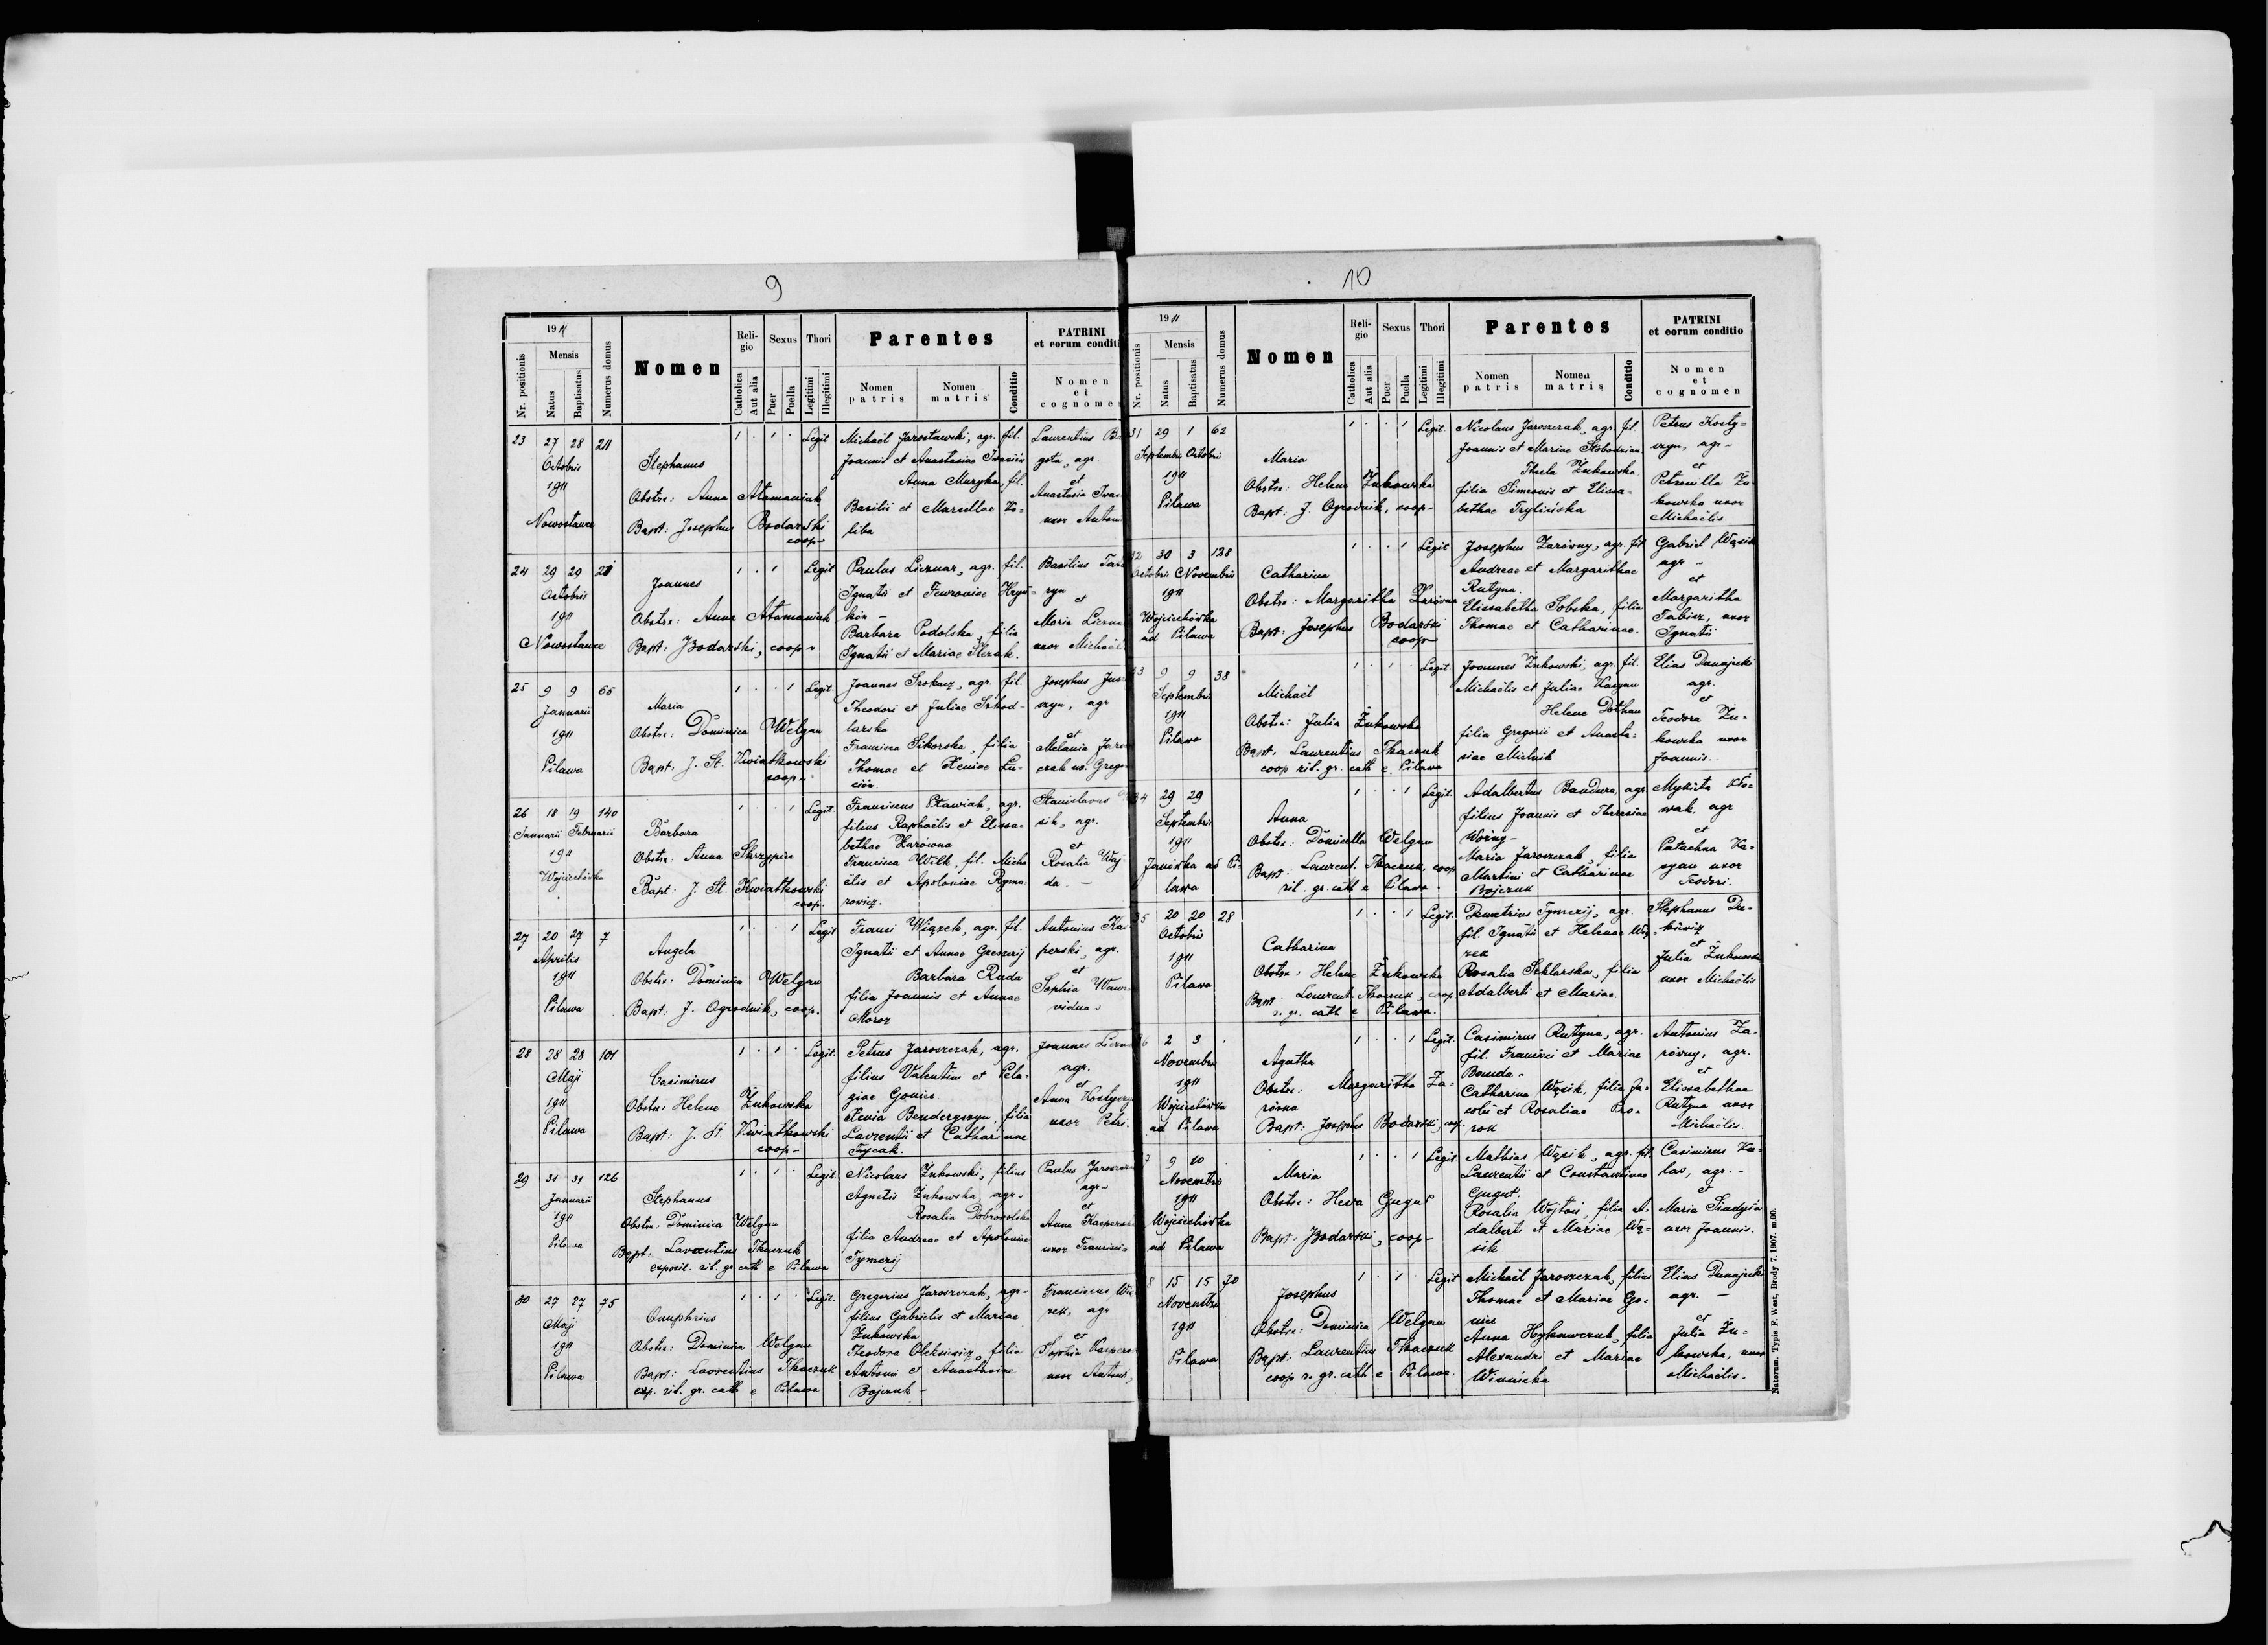 9
1911
Nr. positionis
Mensis
Natus
Baptisatus
Numerus domus
Nomen
Religio
Catholica
Aut alia
Sexus
Puer
Puella
Thori
Legitimi
Illegitimi
Parentes
Nomen patris
Nomen matris
Conditio
PATRINI
et eorum conditi
Nomen
et
cognomen
23 27 28 211 Stephanus 1 · 1 · Legit
Octobris
1911
Nowostawce
Obstx: Anna Atamaniuk
Bapt: Josephus Bodarski
coop-
Michaël Jarosławski, agr. fil.
Joannis et Anastasiae Iwasiów
Anna Muzyka, fil.
Basilii et Marcellae Ko-
liba
Laurentius
gota, agr.
et
Anastasia
uxor
24 29 29 Joannes 1 · 1 Legit
Octobris
1911
Nowostawce
Obstx: Anna Atamaniuk
Bapt: J Bodarski, coop-
Paulus Licznar, agr. fil.
Ignatii et Fewroniae
Barbara Podolska, filia
Ignatii et Mariae Ślezak.
Basilius
et
Maria
uxor Michaël
25 9 9 66 Maria 1 · · 1 Legit.
Januarii
1911
Pilawa
Obstx: Dominica Welgan
Bapt: J. St. Kwiatkowski
coop-
Joannes agr. fil.
Theodori et Juliae Szkod-
larska
Francisca Sikorska, filia
Thomae et Xeniae
Josephus
agr
et
Melania
czak ux. Greg
26 18 19 140 Barbara 1 · · 1 Legit.
Januarii Februarii
1911
Wojciechówka
Obstx: Anna Skrzypiec
Bapt: J. St. Kwiatkowski
coop.
Franciscus agr.
filius Raphaëlis et Elissa-
bethae Zarówna
Francisca Wilk, fil. Micha
ëlis et Apoloniae Rymo
rowicz.
Stanislavus
sik, agr.
et
Rosalia Waj
da. -
27 20 27 7 Angela 1 · · 1 Legit
Aprilis
1911
Pilawa
Obstx: Dominica Welgan
Bapt: J. Ogrodnik, coop.
Franci Wiązek, agr. fil.
Ignatii et Annae
Barbara Ruda
filia Joannis et Annae
Moroz
Antonius Ka
perski, agr.
et
Sophia
vidua.
28 28 28 101 Casimirus 1 · 1 · Legit.
Maji
1911
Pilawa
Obstx: Helene Żukowska
Bapt: J. St. Kwiatkowski
coop-
Petrus Jaroszczak, agr.
filius Valentini et Pela-
giae Goniec.
Xenia filia
Lavrentii et Catharinae
Joannes
agr.
et
Anna
uxor Petri.
29 31 31 126 Stephanus 1 · 1 · Legit.
Januarii
1911
Pilawa
Obstx: Dominica Welgan
Bapt: Lavrentius Tkaczuk
exposit. rit. gr. cath e Pilawa
Nicolaus Żukowski, filius
Agnetis Żukowska, agr-
Rosalia Dobrowolska
filia Andreae et Apoloniae
Tymczij
Paulus
agr-
et
Anna
uxor
30 27 27 75 Onuphrius 1 · 1 · Legit.
Maji
1911
Pilawa
Obstx: Dominica Welgan
Bapt: Lavrentius Tkaczuk
exp. rit. gr. cath e Pilawa
Gregorius Jaroszczak, agr-
filius Gabrielis et Mariae
Żukowska
Theodora Oleksiewicz, filia
Antonii et Anastasiae
Bojczuk -
Franciscus
agr
et
Sophia
uxor Antonii,
10
1911
Nr. positionis
Mensis
Natus
Baptisatus
Numerus domus
Nomen
Religio
Catholica
Aut alia
Sexus
Puer
Puella
Thori
Legitimi
Illegitimi
Parentes
Nomen patris
Nomen matris
Conditio
PATRINI
et eorum conditio
Nomen
et
cognomen
31 29 1 62 Maria 1 · · 1 Legit.
Septembris Octobris
1911
Pilawa
Obstx: Helena Żukowska
Bapt: J. Ogrodnik, coop-
Nicolaus Jaroszczak, agr. fil.
Joannis et Mariae Słobodzian.
Thecla Żukowska
filia Simeonis et Elissa-
bethae Trylińska
Petrus Kosty-
szyn, agr-
et
Petronilla Żu
kowska uxor
Michaëlis
32 30 3 128 Catharina 1 · · 1 Legit
Octobris Novembris
1911
Wojciechówka
ad Pilawa
Obstx: Margaritha Zarówna
Bapt: Josephus Bodarski
coop-
Josephus Zarówny, agr. fil
Andreae et Margarithae
Rutyna.
Elissabetha Sobska, filia
Thomae et Catharinae.
Gabriel Wąsik
agr -
et
Margaritha
Tabisz, uxor
Ignatii
33 9 9 38 Michaël 1 · 1 · Legit
Septembris
1911
Pilawa
Obstx: Julia Żukowska
Bapt. Laurentius Tkaczuk
coop rit. gr. cath e. Pilawa
Joannes Żukowski, agr. fil.
Michaëlis et Juliae Kaszan
Helene Dołhan
filia Gregorii et Anasta-
siae Mielnik
Elias Dunajecki
agr.
et
Teodora Żu-
kowska uxor
Joannis.
34 29 29 Anna 1 · · 1 Legit.
Septembris
1911
Janówka ad Pi-
lawa
Obstx: Domicella Welgan
Bapt: Laurent. Tkaczuk, coop
rit. gr. cath e Pilawa
Adalbertus Bandura, agr
filius Joannis et Theresiae
Woźny-
Maria Jaroszczak, filia
Martini et Catharinae
Bojczuk
Mykita
wak, agr
et
Parachna Ka-
szan uxor
Teodori.
35 20 20 28 Catharina 1 · · 1 Legit.
Octobris
1911
Pilawa
Obstx: Helene Żukowska
Bapt: Laurent. Tkaczuk, coop
r. gr. cath e Pilawa.
Demetrius Tymczij, agr.
fil. Ignatii et Helenae
Rosalia Szklarska, filia
Adalberti et Mariae.
Stephanus
et
Julia Żukowska
uxor Michaëlis
36 2 3 · Agatha 1 · · 1 Legit.
Novembris
1911
Wojciechówka
ad Pilawa
Obstx: Margaritha Za-
równa
Bapt: Josephus Bodarski, coop
Casimirus Rutyna, agr.
fil. Francisci et Mariae
Catharina Wąsik, filia Ja-
cobi et Rosaliae
Antonius Za-
równy, agr.
et
Elissabethaa
Rutyna uxor
Michaëlis.
37 9 10 Maria 1 · · 1 Legit
Novembris
1911
Wojciechówka
ad Pilawa
Obstx: Heva Guguś
Bapt: J Bodarski, coop-
Mathias Wąsik, agr. fil
Laurentii et Constantinae
Guguś.
Rosalia filia A-
dalberti et Mariae Wą-
sik
Casimirus
agr. -
et
Maria
uxor Joannis.
38 15 15 70 Josephus 1 · 1 · Legit
Novembris
1911
Pilawa
Obstx: Dominica Welgan
Bapt: Laurentius Tkaczuk
coop r. gr. cath e Pilawa
Michaël Jaroszczak, filius
Thomae et Mariae Go-
niec
Anna filia
Alexandri et Mariae
Winnicka
Elias Dunajecki
agr. -
et
Julia Żu-
kowska, uxor
Michaëlis.
Natorum. Typis F. West, Brody 7. 1907. m.60.